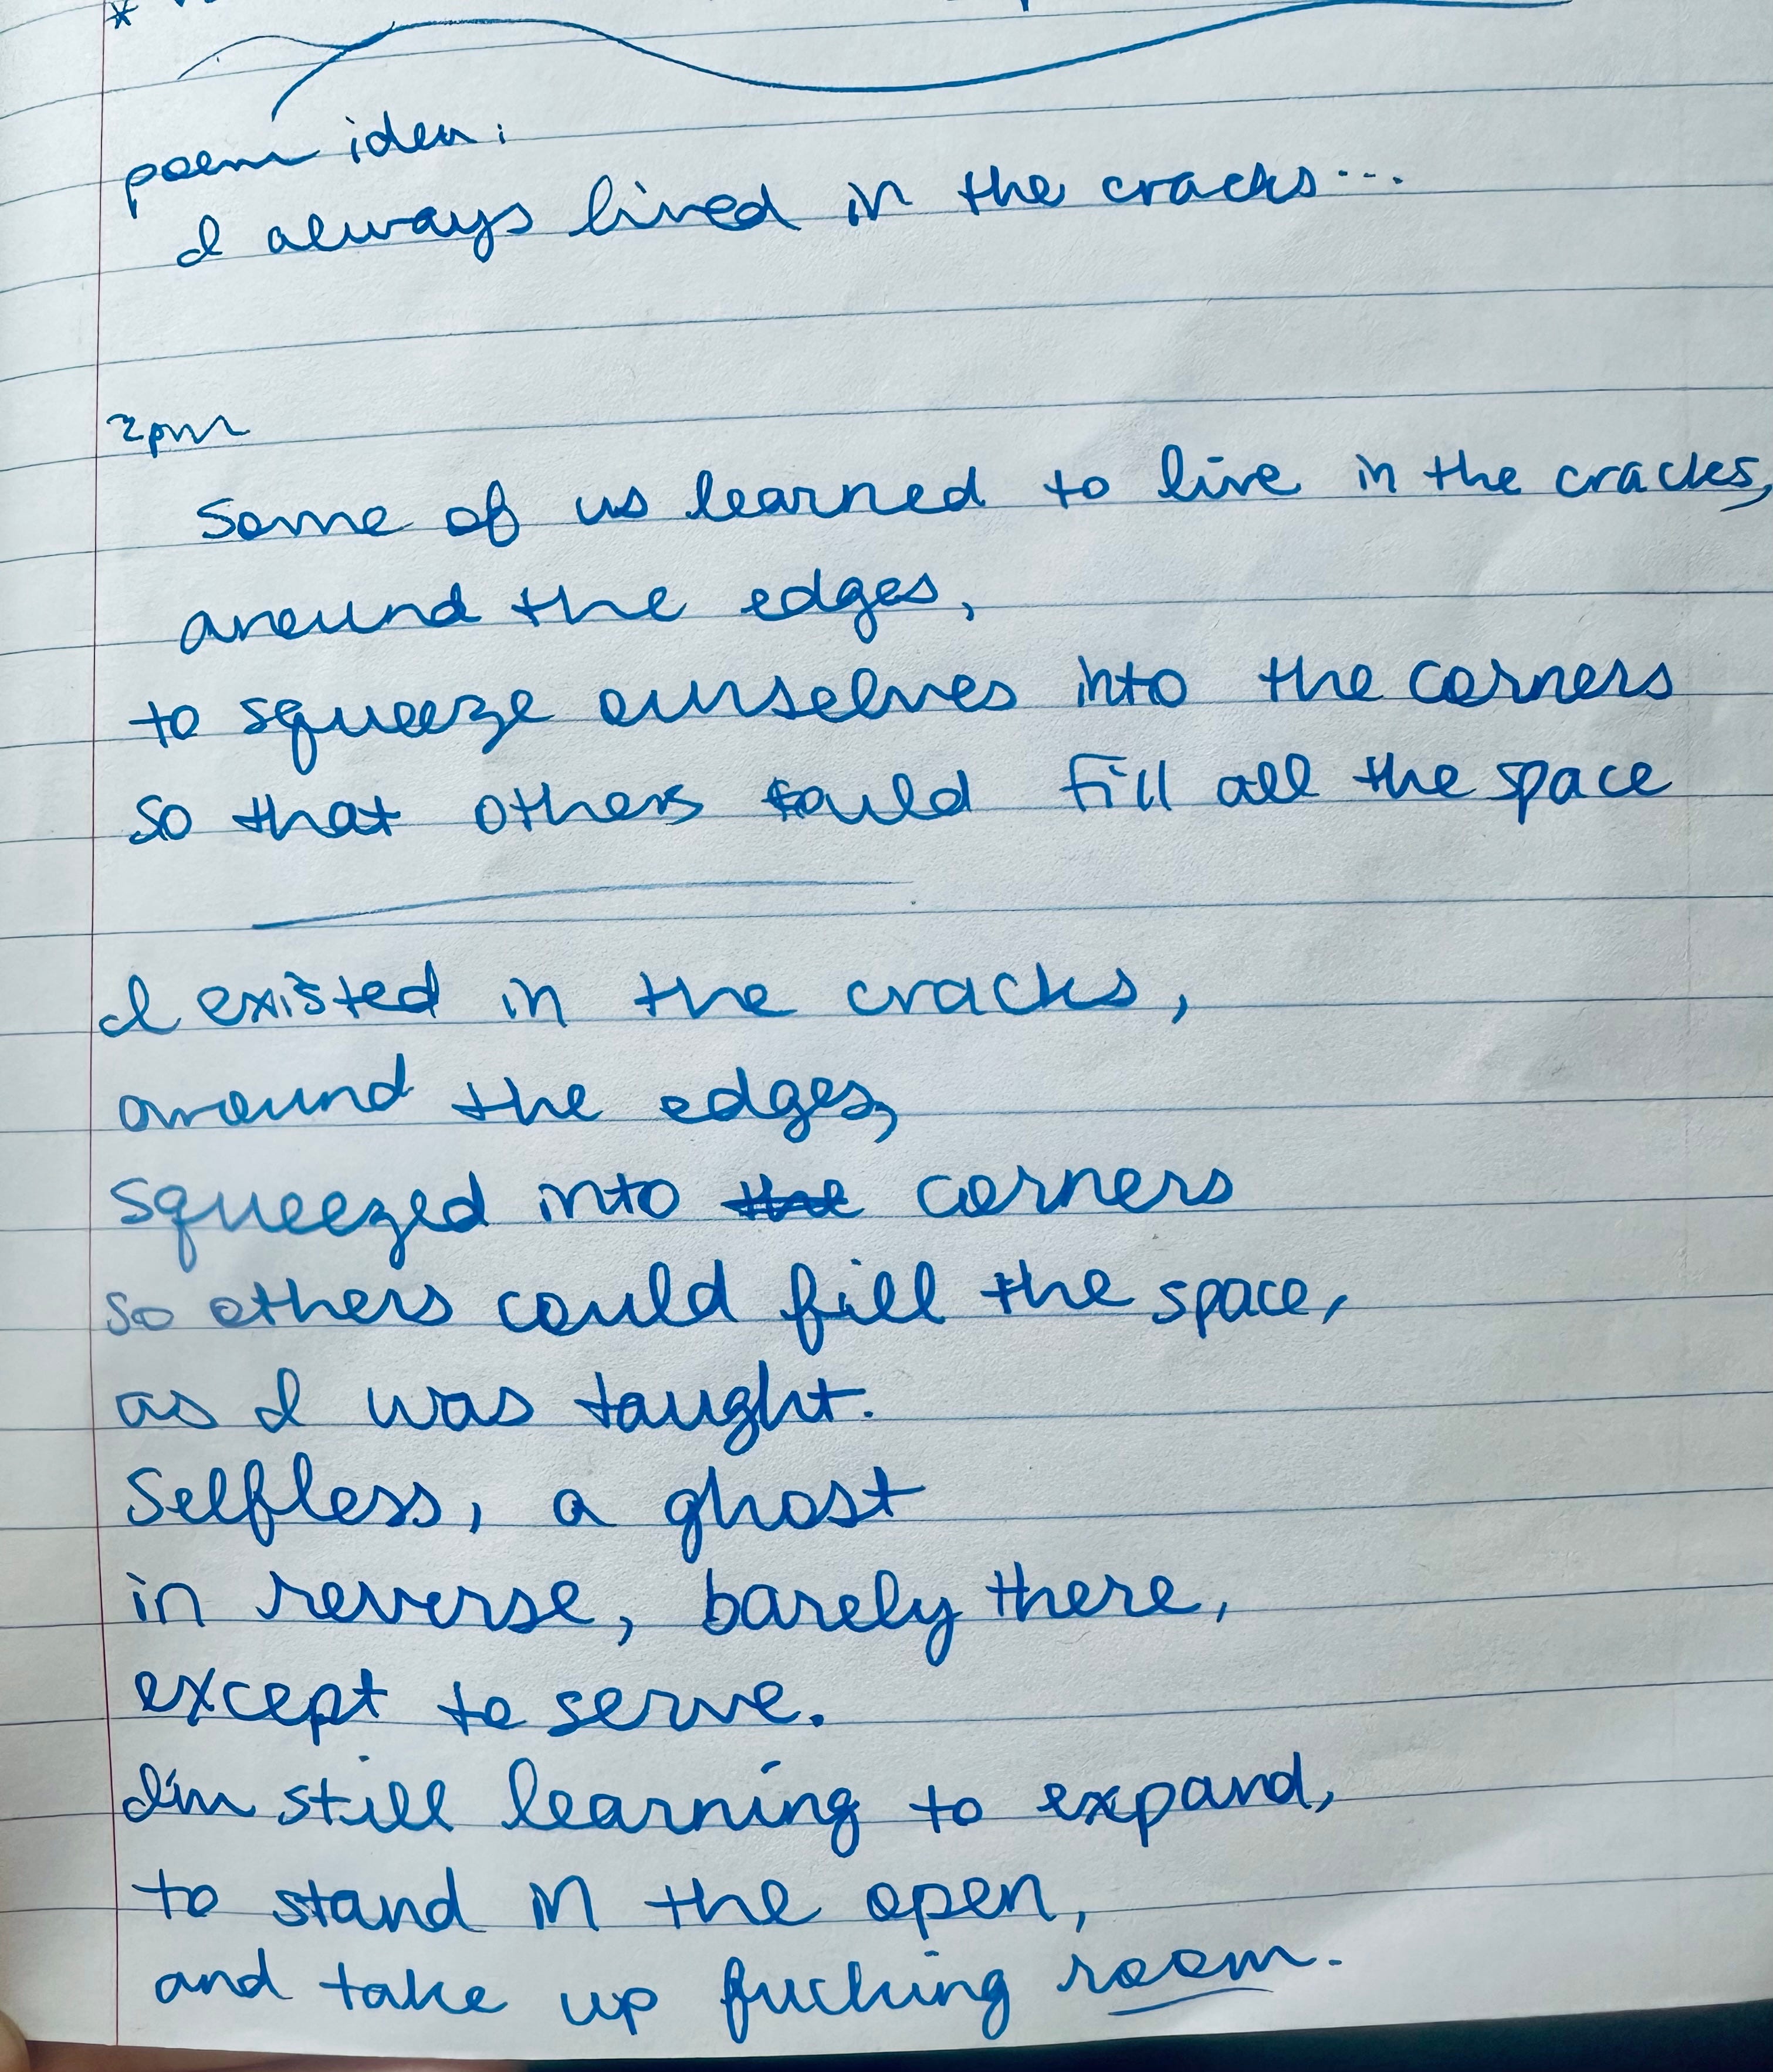 *
poem idea:
I always lived in the cracks...
2pm
Some of us learned to live in the cracks,
around the edges,
to squeeze ourselves into the corners
so that others could fill all the space
I existed in the cracks,
around the edges,
squeezed into the corners
so others could fill the space,
as I was taught.
Selfless, a ghost
in reverse, barely there,
except to serve.
I'm still learning to expand,
to stand in the open,
and take up fucking room.